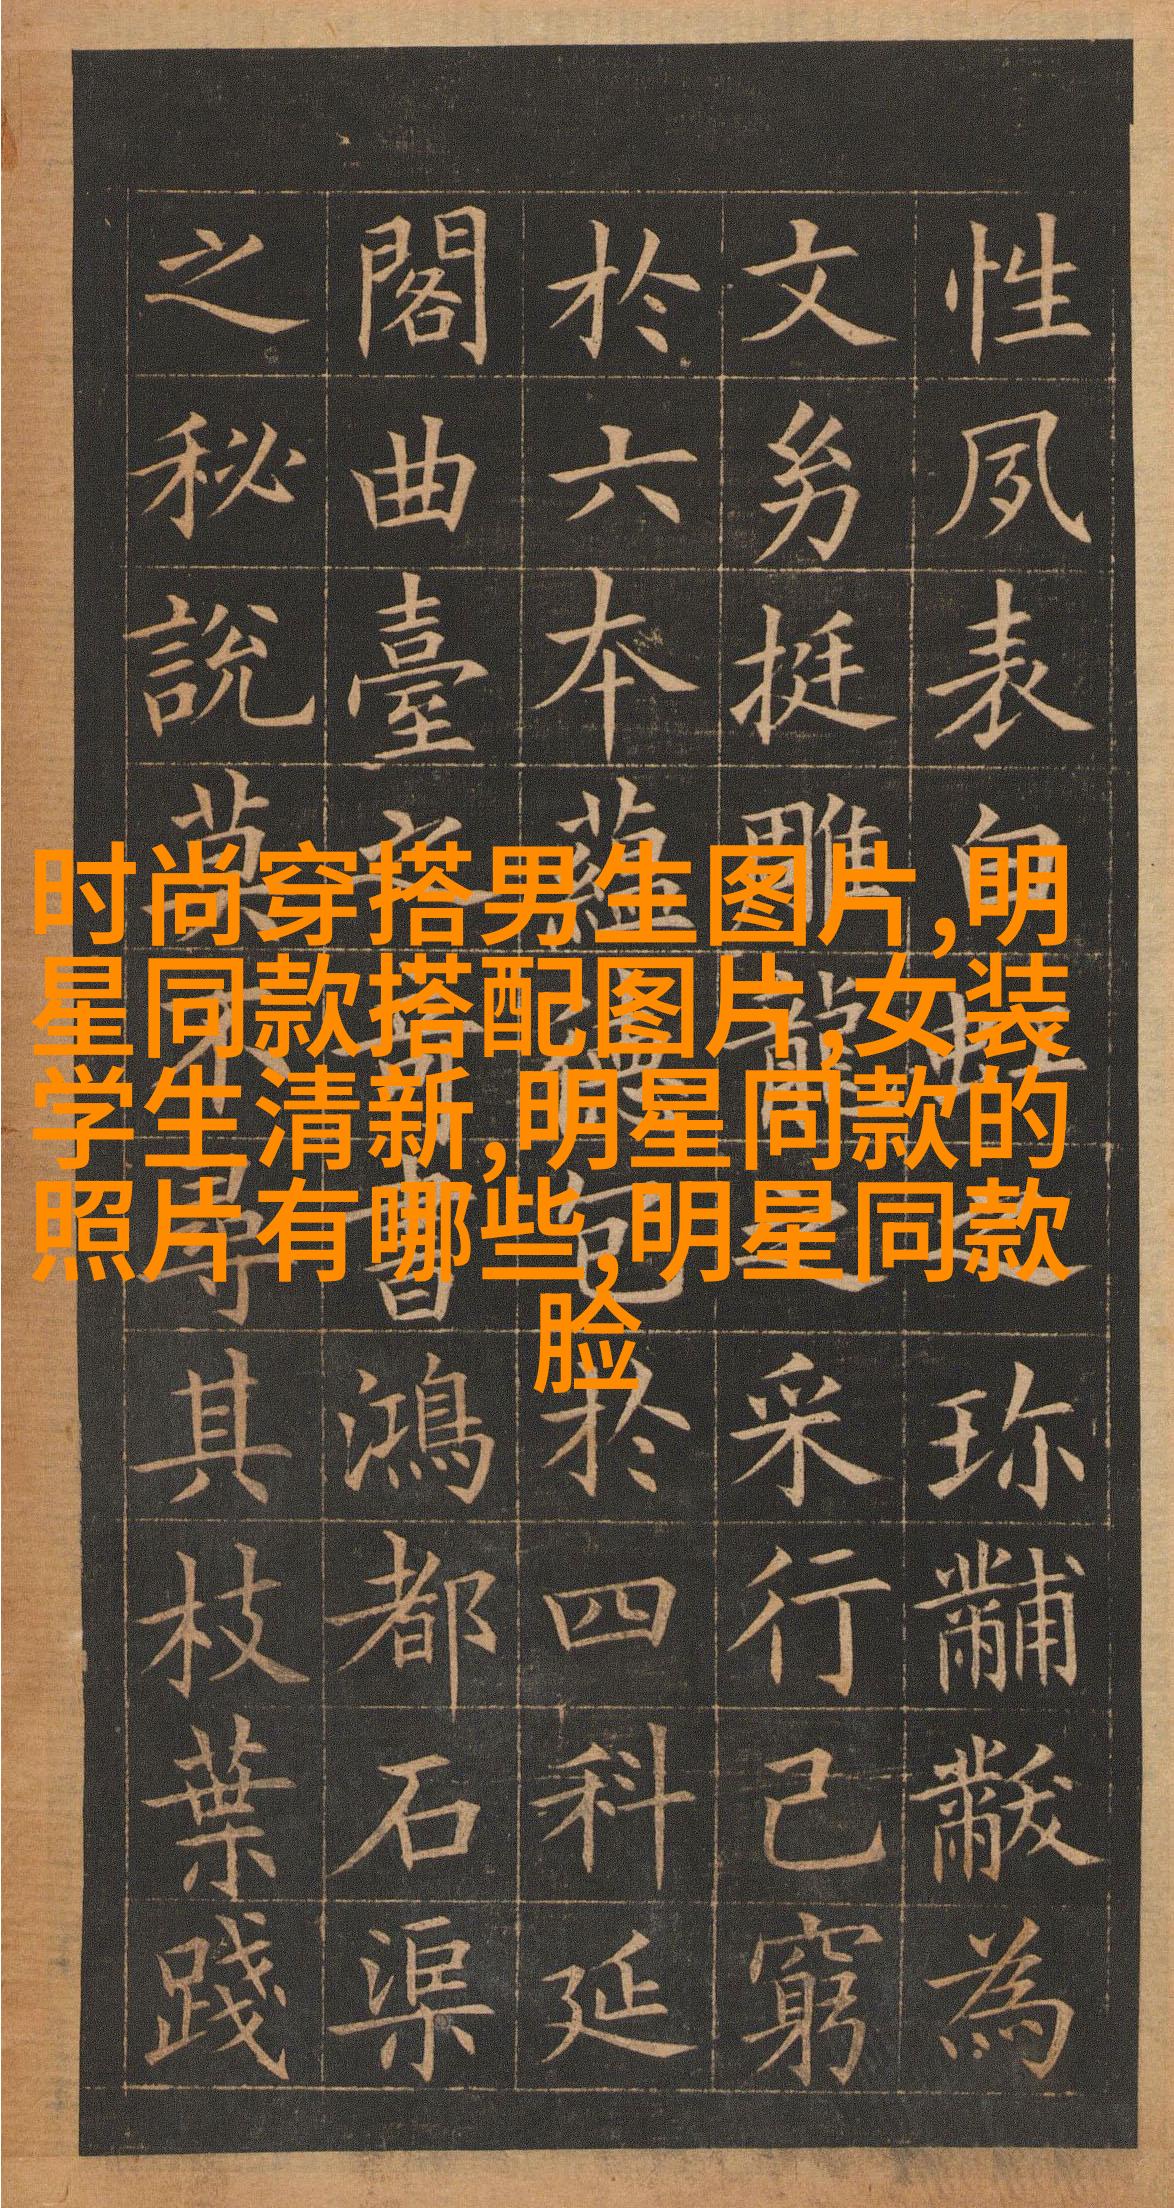 时尚穿搭男生图片,明
星同款搭配图片,女装
学生清新,明星同款的
照片有哪些,明星同款
脸
性夙表珍黼黻為
文挺雕龍之采行己窮
於六本蘊於四科延
閣曲臺之奇書鴻都石渠
之秘說莫不尋其枝葉踐